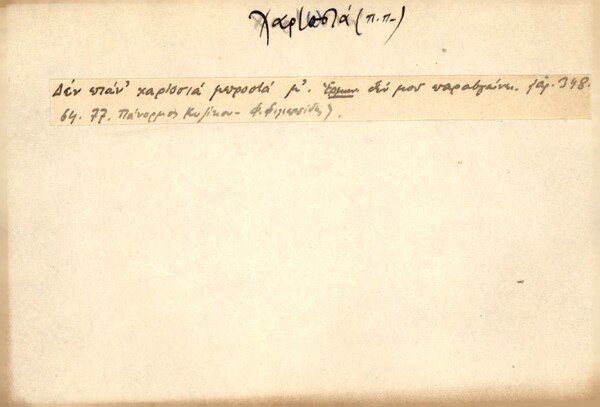 χαριοσιά (π.π.)
Δέν πιάν' χαριοσιά μπροστά μ'. Ἑρμην. δέν μου παραβγαίνει. λαρ. 348.
σελ. 77. Πάνορμος Κυζίκου - Φ. Φιλιππίδης).